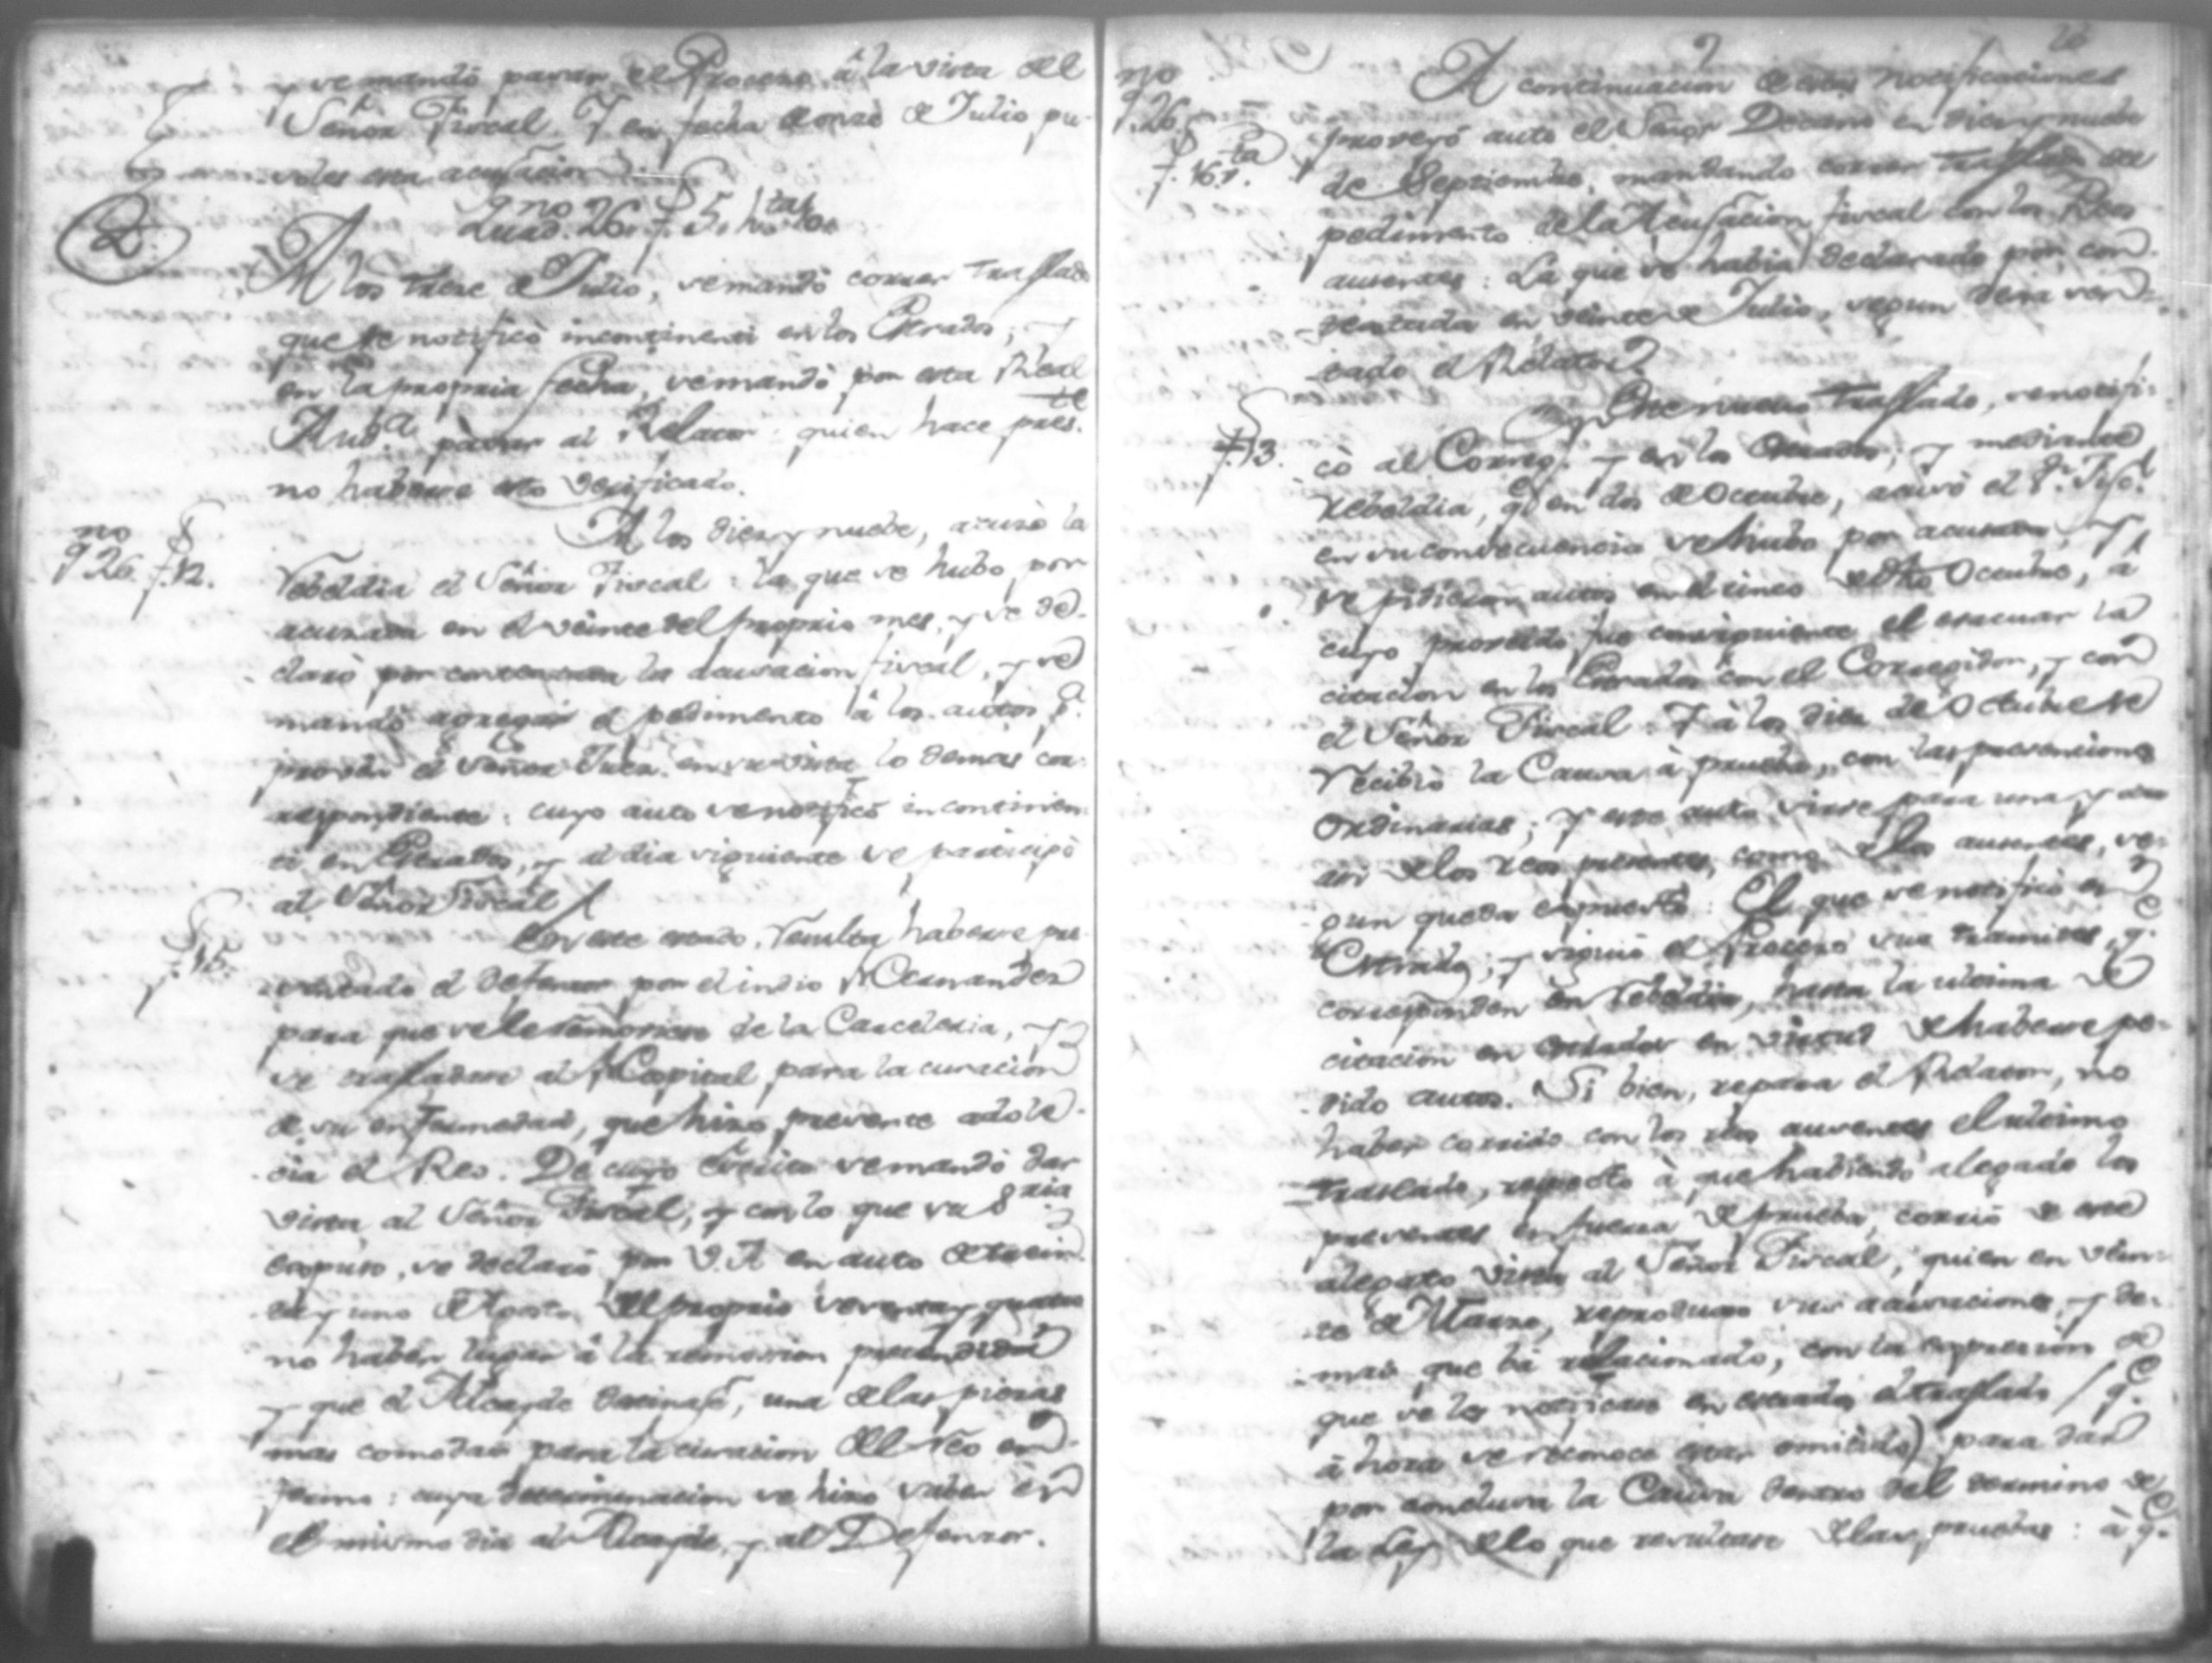 y se mandó pasar el Proceso â la vista del
Señor Fiscal. Y en fecha de onze de Julio pu-
so esta acusacion
Quad.no 26. f. 5. hta
2.
A los treze de Julio, se mandó correr traslado
que se notificó incontinenti en los Estrados; y
en la propria fecha, se mandó por esta Real
Aud.a pasar al Relator: quien hace pres.te
no haberse esto verificado.
q.no 26. f. 12.
A los diez y nuebe, acusó la
rebeldia el Señor Fiscal: la que se hubo por
acusada en el veinte del proprio mes, y se de-
claró por contextada la acusacion fiscal, y se
mandó agregar el pedimento â los autos p.a
proveer el Señor Juez en su vista lo demas cor-
respondiente: cuyo auto se notificó incontinen-
ti en Estrados, y al dia siguiente se participó
al Señor Fiscal
f. 15.
En este estado, resulta haberse pre-
sentado el defensor por el indio Hernandez
para que se le removiese de la Carceleria, y
se trasladase al Hospital para la curacion
de su enfermedad, que hizo presente adole-
cia el Reo. De cuyo Escrito se mandó dar
vista al Señor Fiscal, y con lo que su S.ria
expuso, se declaró por V.A. en auto de trein-
ta y uno de Agosto del proprio sesenta y quatro
no haber lugar â la remocion pretendida
y que el Alcayde destinase, una de las piezas
mas comodas para la curacion del reo en-
fermo: cuya determinacion se hizo saber en
el mismo dia al Alcayde, y al Defensor.
q.no 26. f. 16. v.ta
A continuacion de estas notificaciones
proveyó auto el Señor Decano en diez y nuebe
de Septiembre, mandando correr traslado del
pedimento de la Acusacion fiscal con los Reos
ausentes: La que se habia declarado por con-
textada en veinte de Julio, segun deja sen-
tado el Relator
f. 13.
Este nuevo traslado, se notifi-
có al Correg.r y en los Estrados; y mediante
rebeldia, q.e en dos de Octubre, acusó el S.r Fisc.l
en su consecuencia se hubo por acusada, y
se pidieron autos en el cinco de dho Octubre, â
cuyo proveido fue consiguiente el evacuar la
citacion en los Estrados con el Corregidor, y con
el Señor Fiscal: Y â los diez de Octubre se
recibió la Causa â prueba, con las prevenciones
Ordinarias; y este auto sirve para una y otra
asi de los reos presentes, como de los ausentes, se-
gun queda expuesto: El que se notificó en
Estrados; y siguió el Proceso sus tramites, q.e
corresponden en rebeldia, hasta la ultima de
citacion en estrados en virtud de haberse pe-
dido autos. Si bien, repara el Relator, no
haber corrido con los reos ausentes el ultimo
traslado, respecto â que habiendo alegado los
presentes en fuerza de prueba, corrió de este
alegato vista al Señor Fiscal, quien en vein-
te de Marzo, reproduxo sus acusaciones, y de-
mas que bâ relacionado, con la expresion de
que se les notificase en estrados el traslado / q.e
â hora se reconoce estar omitido) para dar
por conclusa la Causa dentro del termino de
la Ley de lo que resultase de las pruebas: â q.e